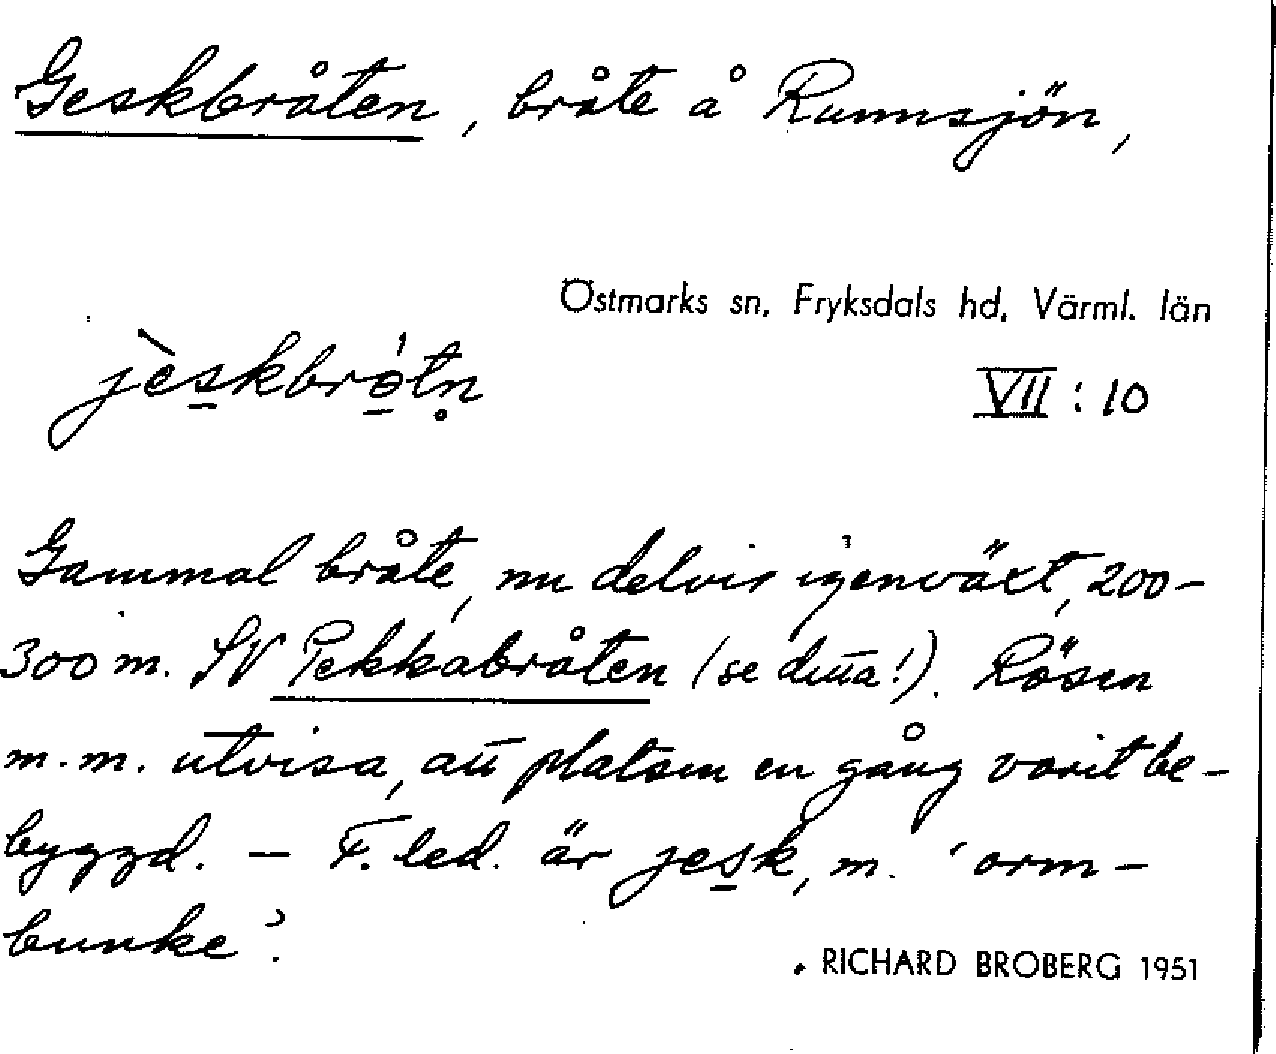 Geskbråten, bråte å Runnsjön,
Östmarks sn, Fryksdals hd, Värml. län
jèskbrótn̥
VII : 10
Gammal bråte, nu delvis igenväxt, 200-
300 m. SV Pekkabråten (se detta!). Rösen
m.m. utvisa, att platsen en gång varit be-
byggd. – F. led. är jesk, m. 'orm-
bunke'.
RICHARD BROBERG 1951